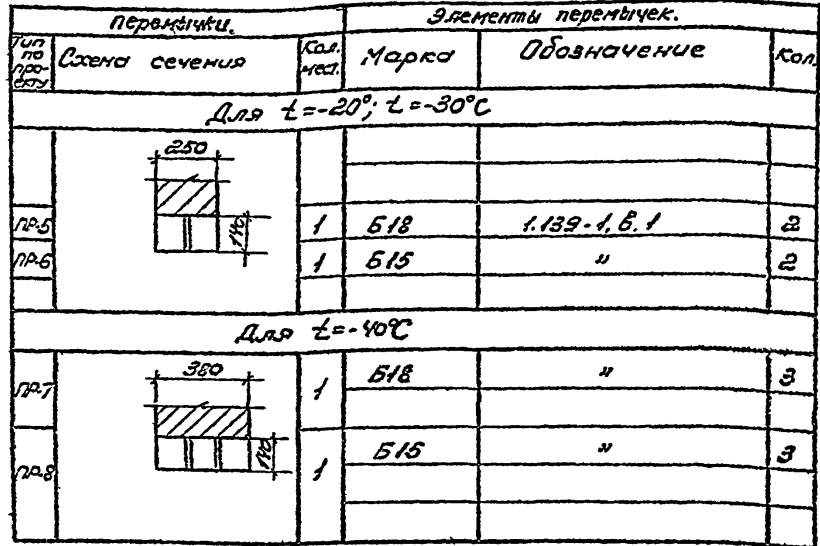 Перемычки.
Элементы перемычек.
Тип по про-екту
Схема сечения
Кол. мест.
Марка
Обозначение
Кол.
Для t=-20°; t=-30°C
250
140
ПР-5 1 Б18 1.139-1, в.1 2
ПР-6 1 Б15 " 2
Для t=-40°C
380
140
ПР-7 1 Б18 " 3
ПР-8 1 Б15 " 3